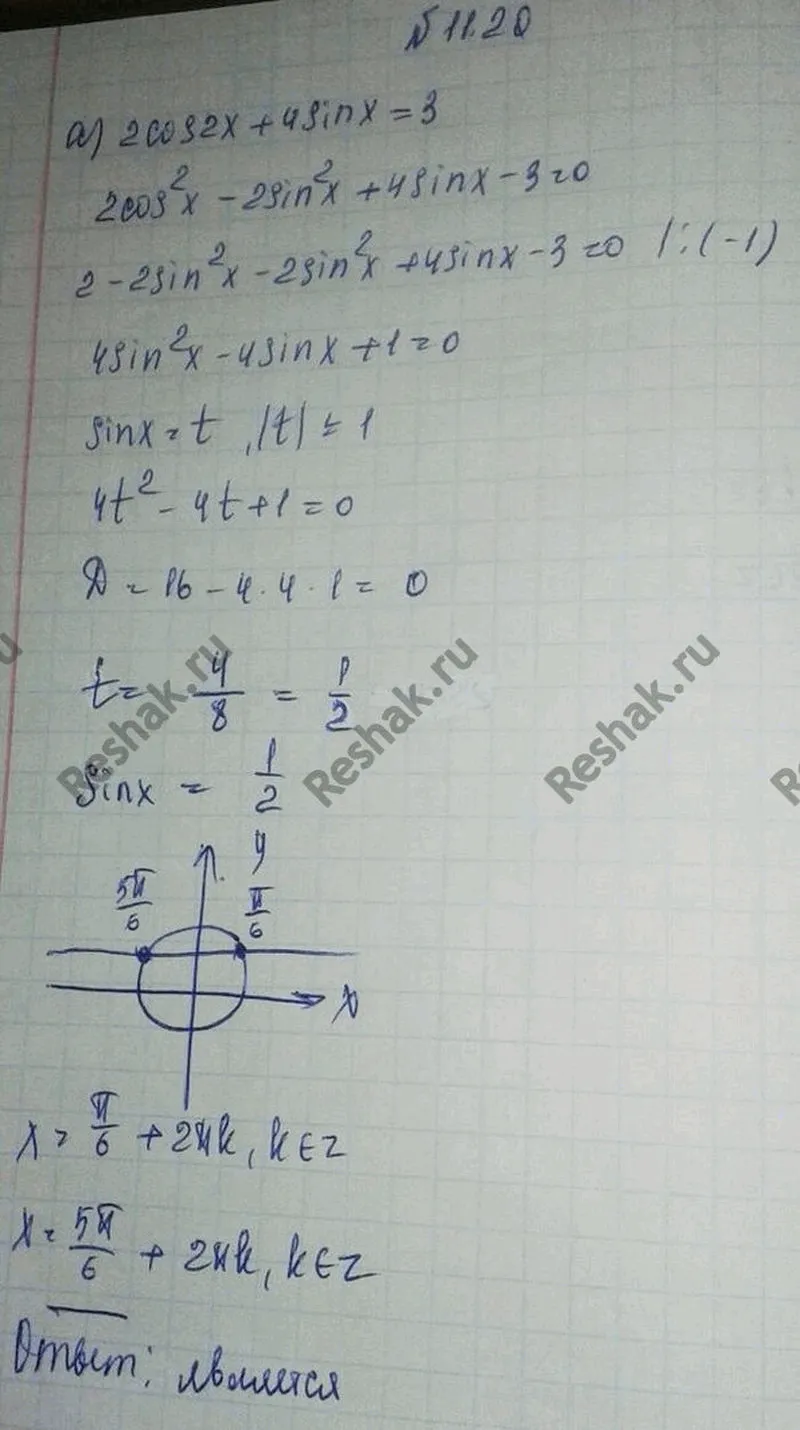 № 11.20
а) 2cos2x + 4sinx = 3
2cos²x - 2sin²x + 4sinx - 3 = 0
2 - 2sin²x - 2sin²x + 4sinx - 3 = 0 |:(-1)
4sin²x - 4sinx + 1 = 0
sinx = t, |t| ≤ 1
4t² - 4t + 1 = 0
D = 16 - 4·4·1 = 0
t = 4/8 = 1/2
Reshak.ru Reshak.ru Reshak.ru
sinx = 1/2
y
5π/6 π/6
x
x = π/6 + 2πk, k∈z
x = 5π/6 + 2πk, k∈z
Ответ: является